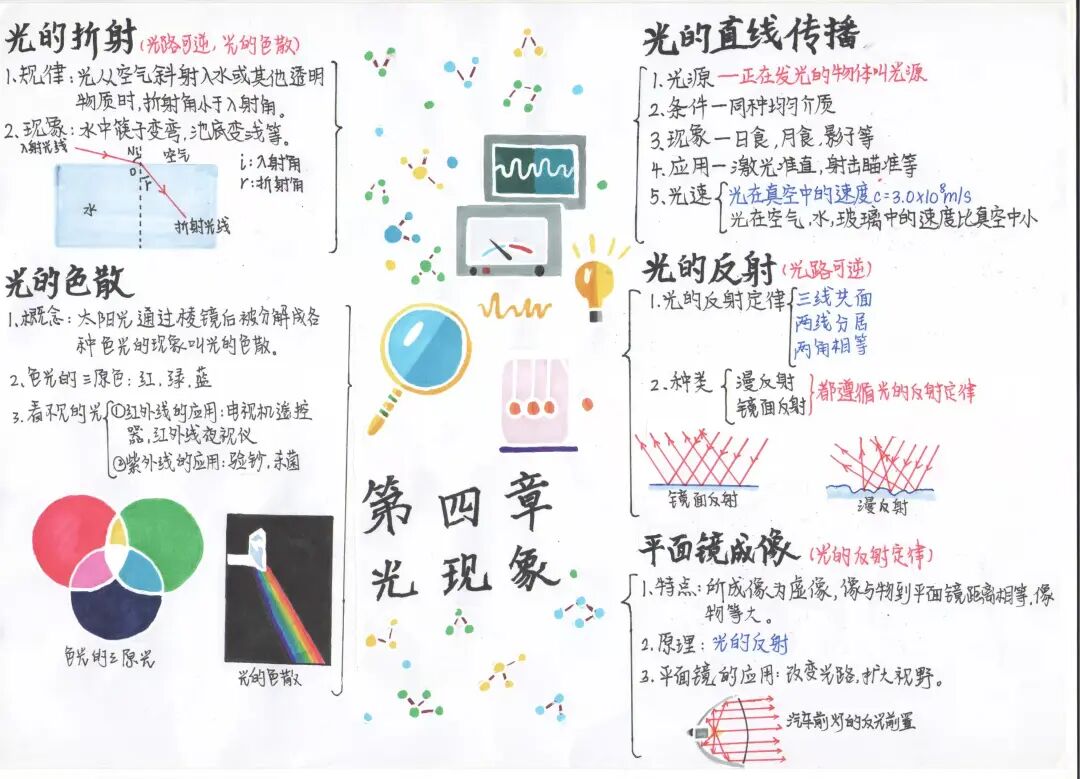 光的折射(光路可逆,光的色散)
1.规律:光从空气斜射入水或其他透明
物质时,折射角小于入射角。
2.现象:水中筷子变弯,池底变浅等。
入射光线
N
i
空气
i:入射角
O
r
r:折射角
水
折射光线
光的色散
1.概念:太阳光通过棱镜后被分解成各
种色光的现象叫光的色散。
2.色光的三原色:红,绿,蓝
3.看不见的光
①红外线的应用:电视机遥控
器,红外线夜视仪
②紫外线的应用:验钞,杀菌
色光的三原光
光的色散
第四章
光现象
光的直线传播
1.光源—正在发光的物体叫光源
2.条件—同种均匀介质
3.现象—日食,月食,影子等
4.应用—激光准直,射击瞄准等
5.光速
光在真空中的速度c=3.0×10⁸m/s
光在空气,水,玻璃中的速度比真空中小
光的反射(光路可逆)
1.光的反射定律
三线共面
两线分居
两角相等
2.种类
漫反射
镜面反射
都遵循光的反射定律
镜面反射
漫反射
平面镜成像(光的反射定律)
1.特点:所成像为虚像,像与物到平面镜距离相等,像
物等大。
2.原理:光的反射
3.平面镜的应用:改变光路,扩大视野。
汽车前灯的反光前置